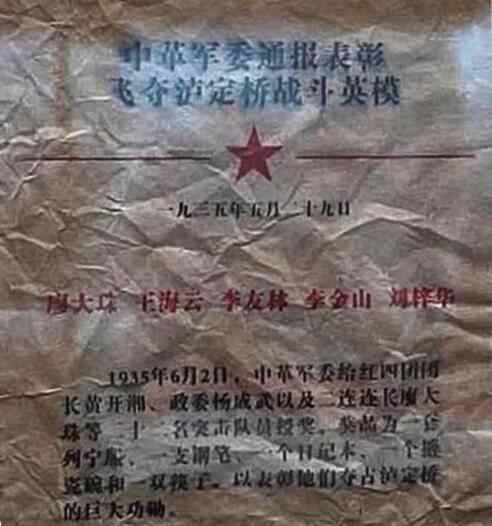 中革军委通报表彰
飞夺泸定桥战斗英模
一九三五年五月二十九日
廖大珠 王海云 李友林 李金山 刘梓华
1935年6月2日，中革军委给红四团团
长黄开湘、政委杨成武以及二连连长廖大
珠等二十二名突击队员授奖。奖品为一套
列宁服、一支钢笔、一个日记本、一个搪
瓷碗和一双筷子。以表彰他们夺占泸定桥
的巨大功勋。